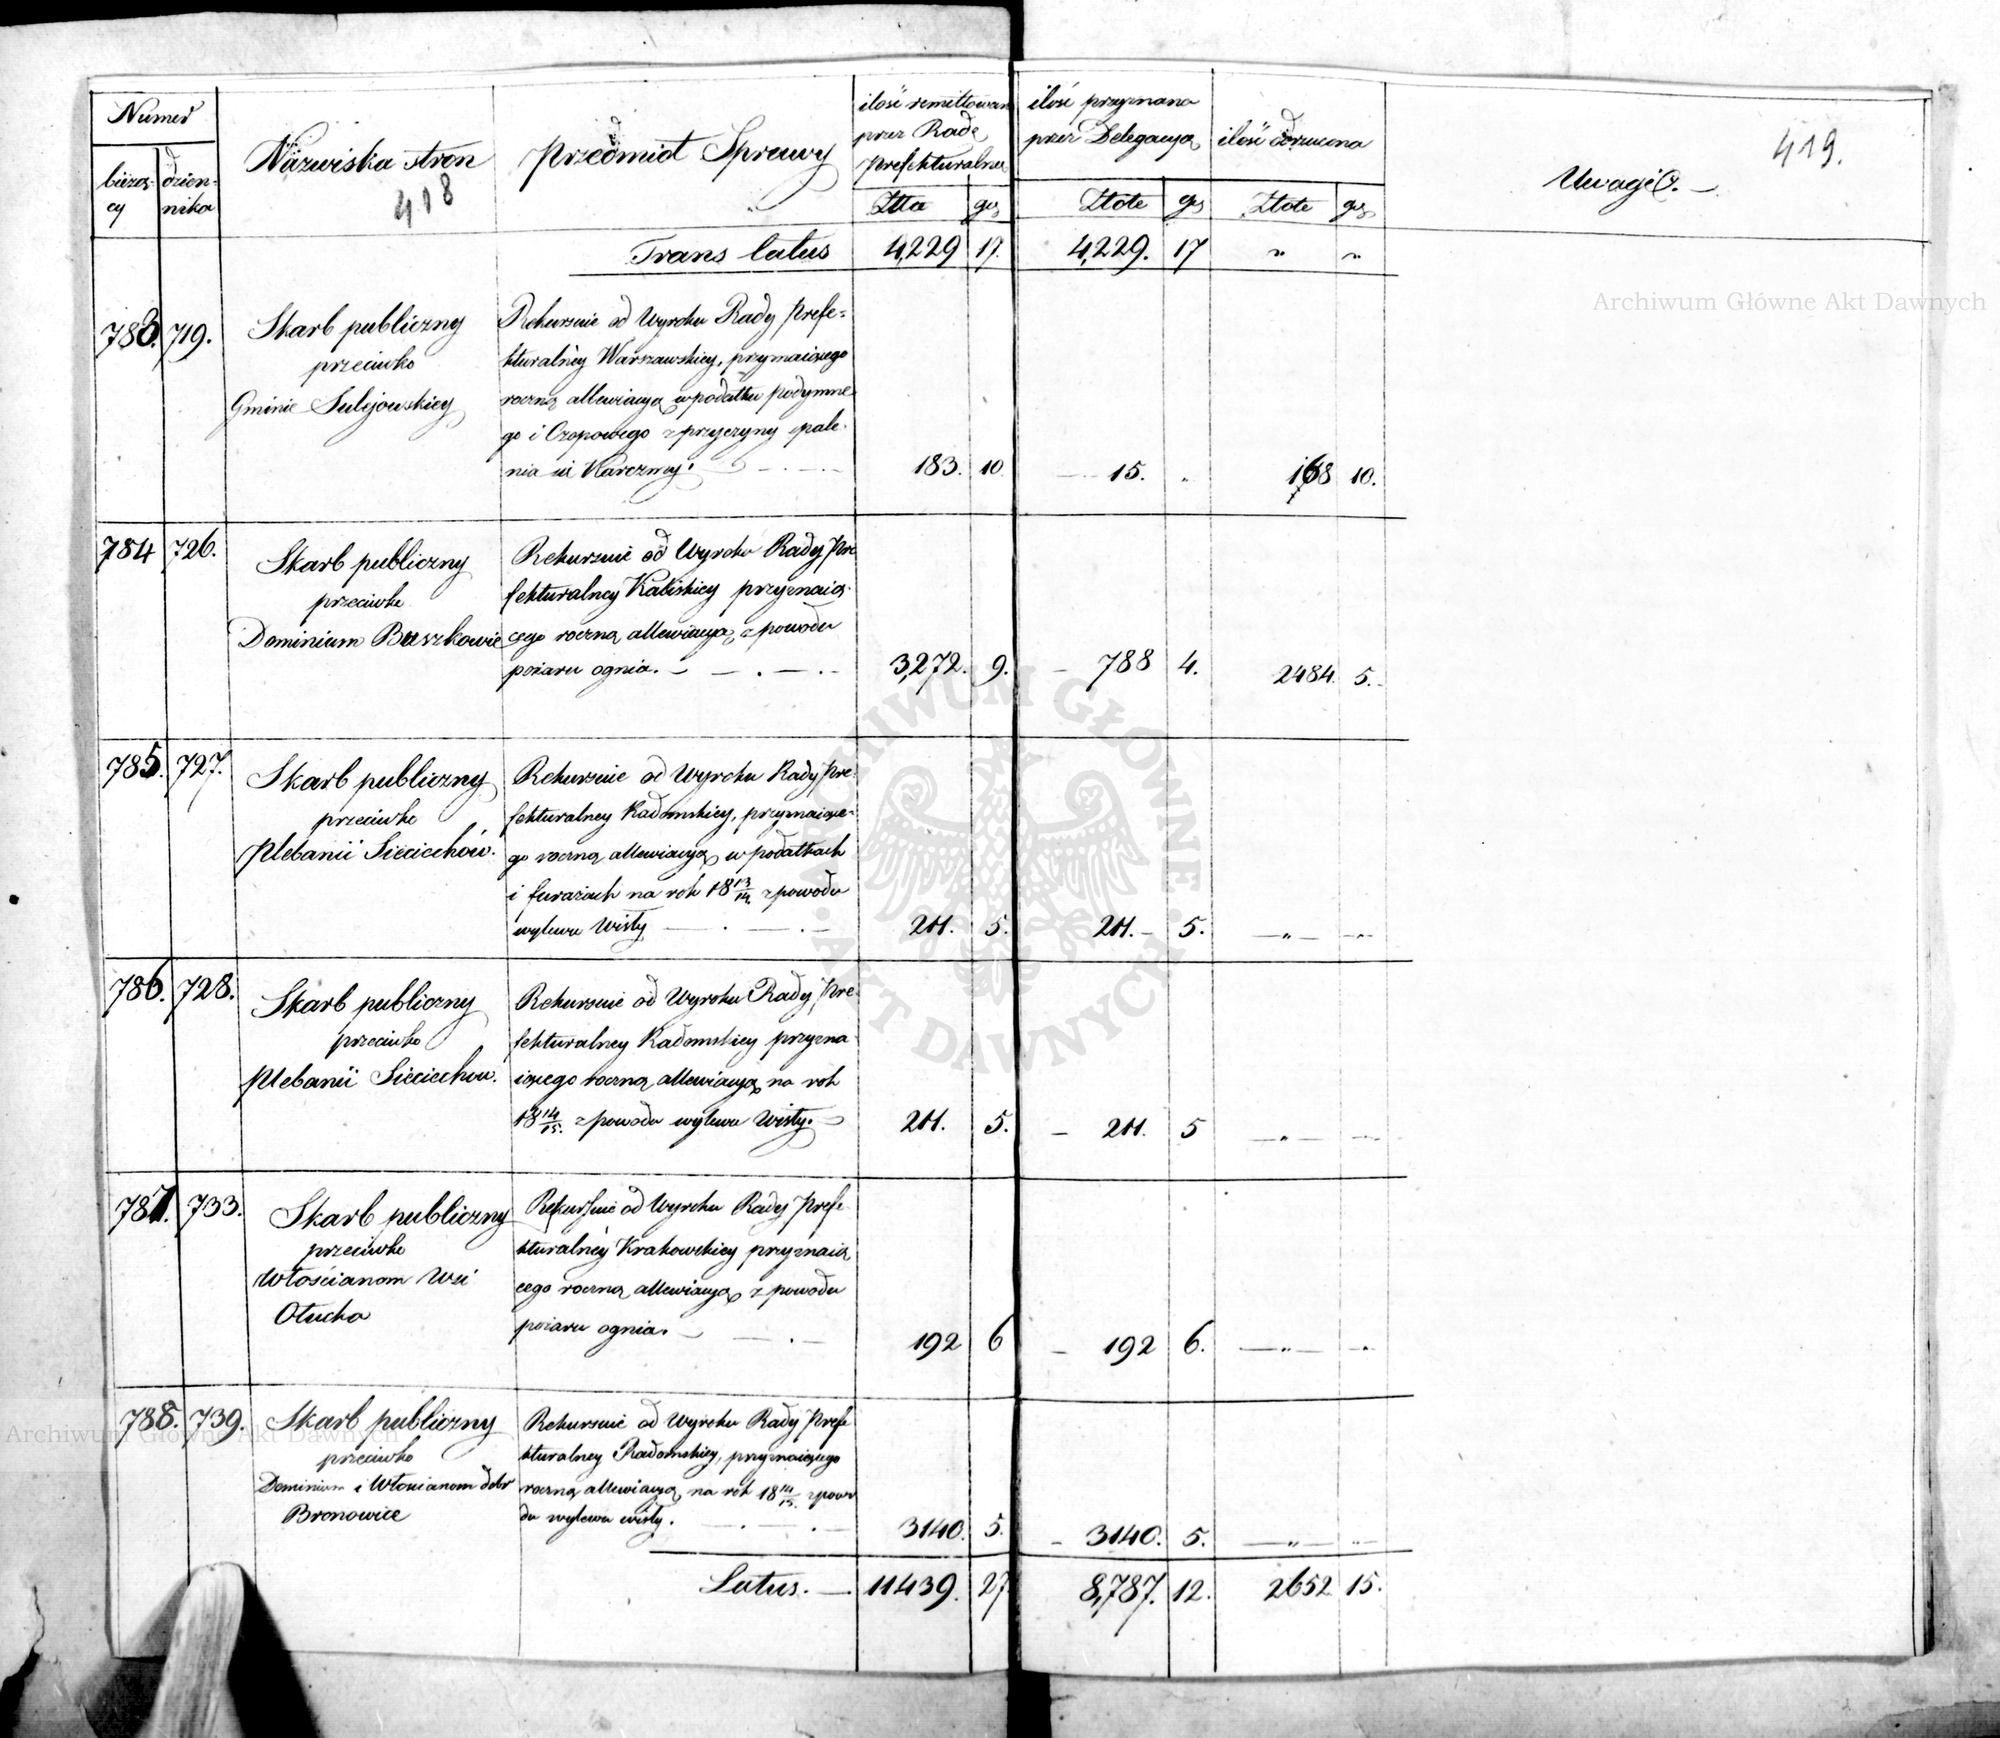 Numer
bieżą-
cy
dzien-
nika
Nazwiska stron
418
Przedmiot Sprawy
ilość remittowana
przez Radę
Prefekturalną
Złła
gr
ilość przyznana
przez Delegacyą
Złote
gr
ilość odrzucona
Złote
gr
Uwagi
419.
Trans latus 4,229 17. 4,229. 17 " "
783. 719.
Skarb publiczny
przeciwko
Gminie Sulejowskiey
Rekursuie od Wyroku Rady Prefe-
kturalney Warszawskiey, przyznaiącego
roczną allewiacyą w podatku podymne
go i Czopowego z przyczyny spale-
nia się Karczmy. 183. 10 15. " 168 10.
784 726.
Skarb publiczny
przeciwko
Dominium Buszkowie
Rekursuie od Wyroku Rady Pre
fekturalney Kaliskiey przyznaią-
cego roczną allewiacyą z powodu
pożaru ognia. 3,272. 9. 788 4. 2484. 5.
785. 727.
Skarb publiczny
przeciwko
Plebanii Sieciechów.
Rekursuie od Wyroku Rady Pre-
fekturalney Radomskiey, przyznaiące-
go roczną allewiacyą w podatkach
i furażach na rok 18 13/14. z powodu
wylewu Wisły 211. 5. 211. 5. " "
786. 728.
Skarb publiczny
przeciwko
Plebanii Sieciechow.
Rekursuie od Wyroku Rady Pre
fekturalney Radomskiey przyzna
iącego roczną allewiacyą na rok
18 14/15. z powodu wylewu Wisły. 211. 5. 211. 5 " "
787. 733.
Skarb publiczny
przeciwko
Włościanom Wsi
Otucha
Rekursuie od Wyroku Rady Prefe
kturalney Krakowskiey przyznaią
cego roczną allewiacyą z powodu
pożaru ognia. 192 6 192 6. " "
788. 739.
Skarb publiczny
przeciwko
Dominium i Włościanom dobr
Bronowice
Rekursuie od Wyroku Rady Prefe
kturalney Radomskiey, przyznaiącego
roczną allewiacyą na rok 18 14/15. z powo
du wylewu wisły. 3140. 5. 3140. 5. " "
Latus. 11439. 27 8,787. 12. 2652 15.
Archiwum Główne Akt Dawnych
Archiwum Główne Akt Dawnych
ARCHIWUM GŁÓWNE AKT DAWNYCH